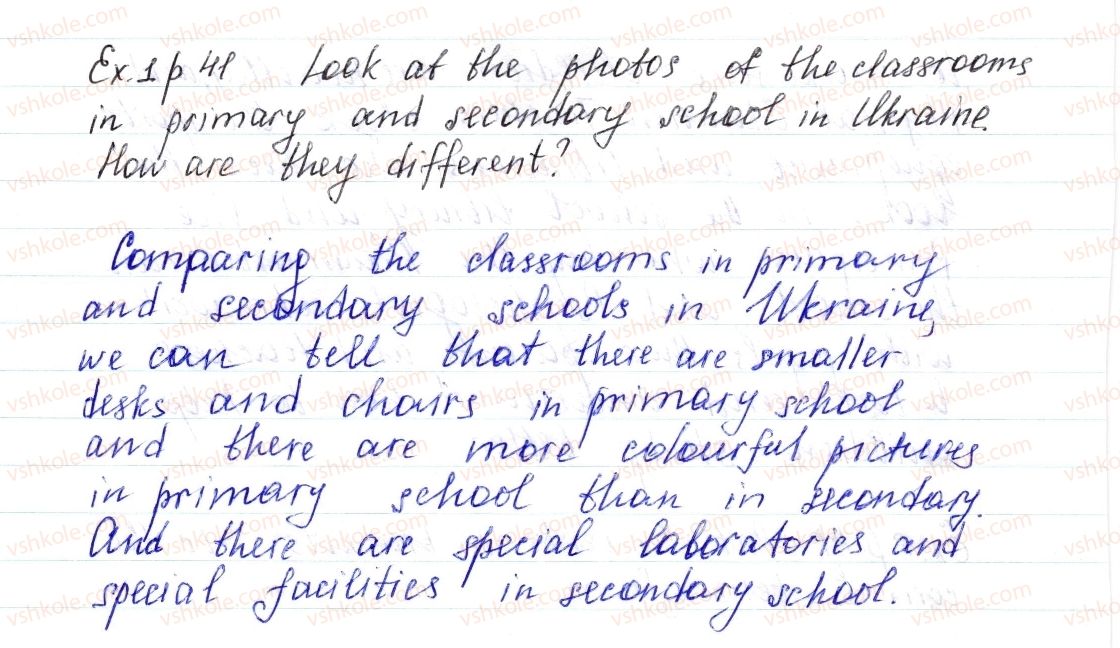 Ex. 1 p 41 Look at the photos of the classrooms
in primary and secondary school in Ukraine.
How are they different?
Comparing the classrooms in primary
and secondary schools in Ukraine,
we can tell that there are smaller
desks and chairs in primary school
and there are more colourful pictures
in primary school than in secondary.
And there are special laboratories and
special facilities in secondary school.